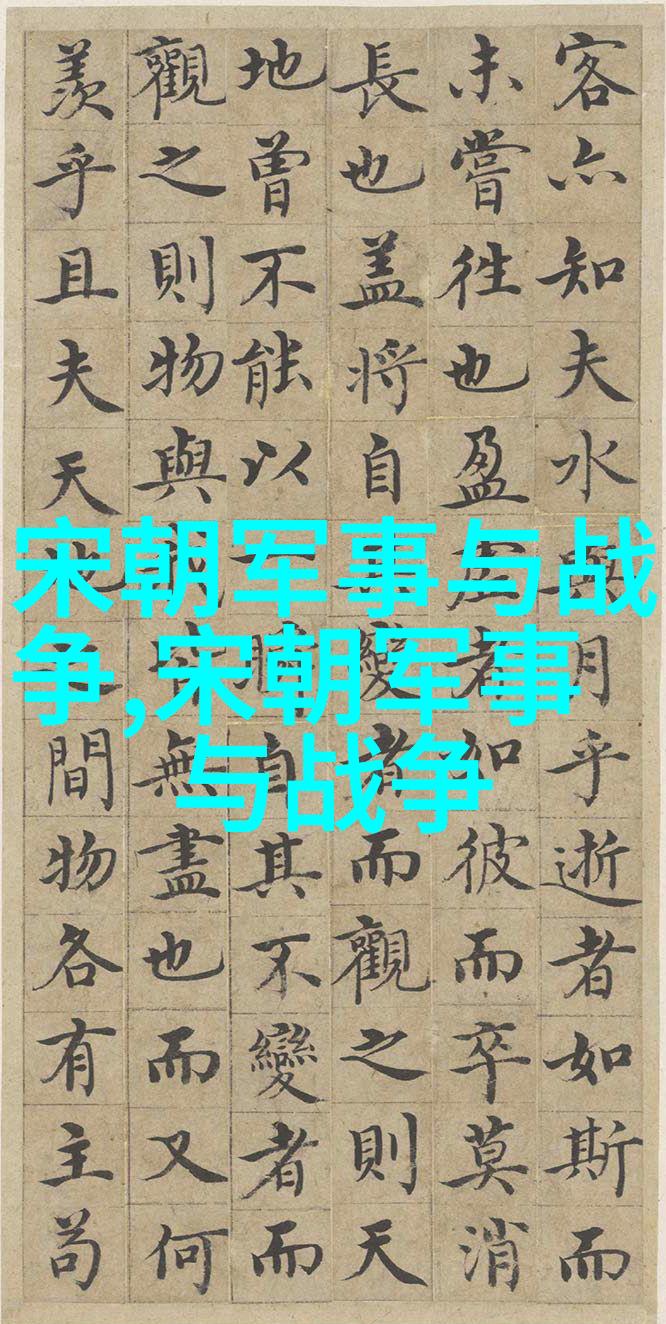 客亦知夫水與月乎逝者如斯而
未嘗往也盈虛者如彼而卒莫消
長也盖將自其變者而觀之則天
地曾不能以一瞬自其不變者而
觀之則物與我皆無盡也而又何
羨乎且夫天地之間物各有主苟
宋朝军事与战
争,宋朝军事
与战争